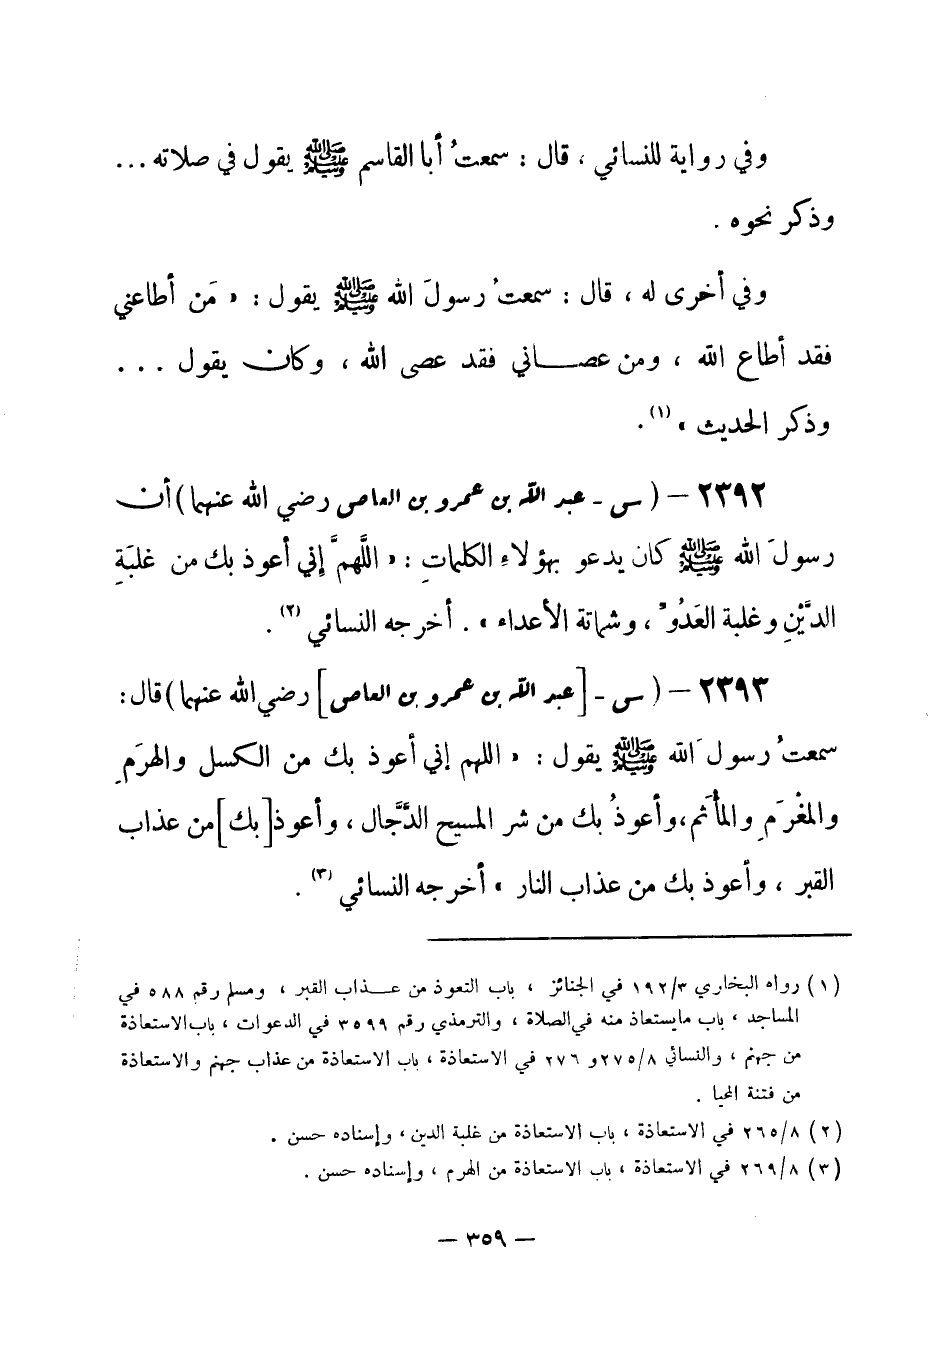 وفي رواية للنسائي ، قال : سمعتُ أبا القاسم ﷺ يقول في صلاته ...
وذكر نحوه .
وفي أخرى له ، قال : سمعتُ رسولَ الله ﷺ يقول : « مَن أطاعني
فقد أطاع الله ، ومن عصاني فقد عصى الله ، وكان يقول ...
وذكر الحديث » (١) .
٢٣٩٢ – ( س - عبد الله بن عمرو بن العاص رضي الله عنهما ) أن
رسولَ الله ﷺ كان يدعو بهؤلاءِ الكلماتِ : « اللَّهمَّ إِني أعوذ بك من غلبَةِ
الدَّيْنِ وغلبة العَدُوِّ ، وشماتة الأعداء » . أخرجه النسائي (٢) .
٢٣٩٣ – ( س - [ عبد الله بن عمرو بن العاص ] رضي الله عنهما ) قال :
سمعتُ رسولَ الله ﷺ يقول : « اللهم إني أعوذ بك من الكسل والهرَمِ
والمغْرَمِ والمأثَم ، وأعوذُ بك من شر المسيح الدَّجَّال ، وأعوذ [ بك ] من عذاب
القبر ، وأعوذ بك من عذاب النار » أخرجه النسائي (٣) .
(١) رواه البخاري ١٩٢/٣ في الجنائز ، باب التعوذ من عذاب القبر ، ومسلم رقم ٥٨٨ في
المساجد ، باب ما يستعاذ منه في الصلاة ، والترمذي رقم ٣٥٩٩ في الدعوات ، باب الاستعاذة
من جهنم ، والنسائي ٢٧٥/٨ و ٢٧٦ في الاستعاذة ، باب الاستعاذة من عذاب جهنم والاستعاذة
من فتنة المحيا .
(٢) ٢٦٥/٨ في الاستعاذة ، باب الاستعاذة من غلبة الدين ، وإسناده حسن .
(٣) ٢٦٩/٨ في الاستعاذة ، باب الاستعاذة من الهرم ، وإسناده حسن .
– ٣٥٩ –